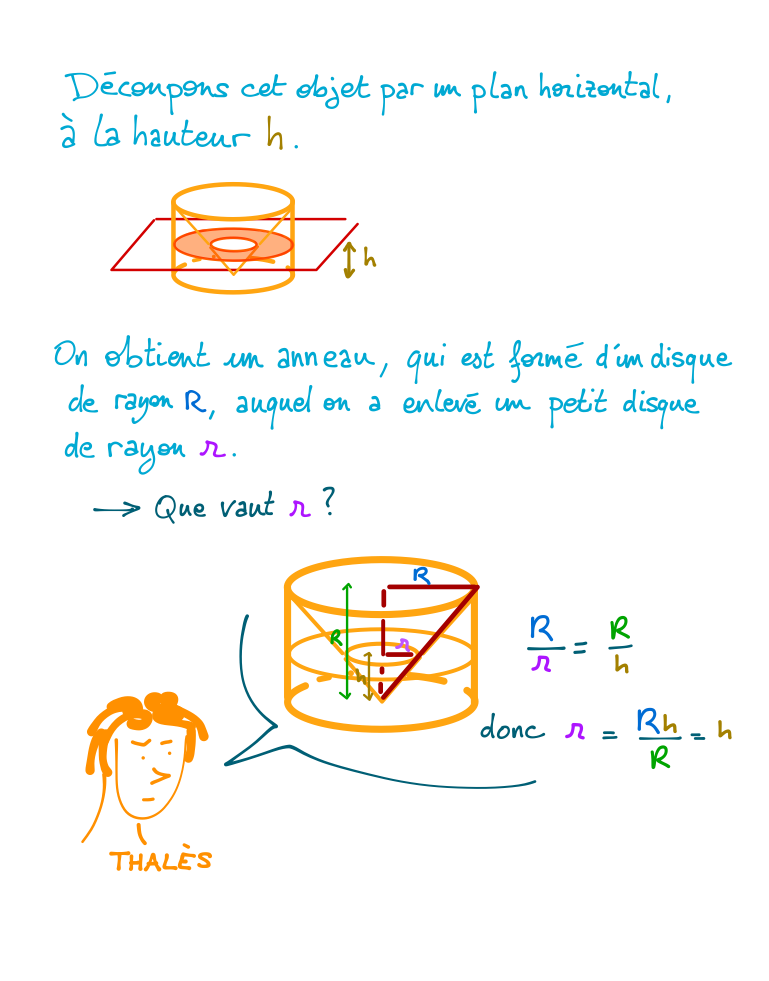 Découpons cet objet par un plan horizontal,
à la hauteur h.
h
On obtient un anneau, qui est formé d'un disque
de rayon R, auquel on a enlevé un petit disque
de rayon r.
→ Que vaut r ?
R
R
r
h
R/r = R/h
donc r = Rh/R = h
THALÈS